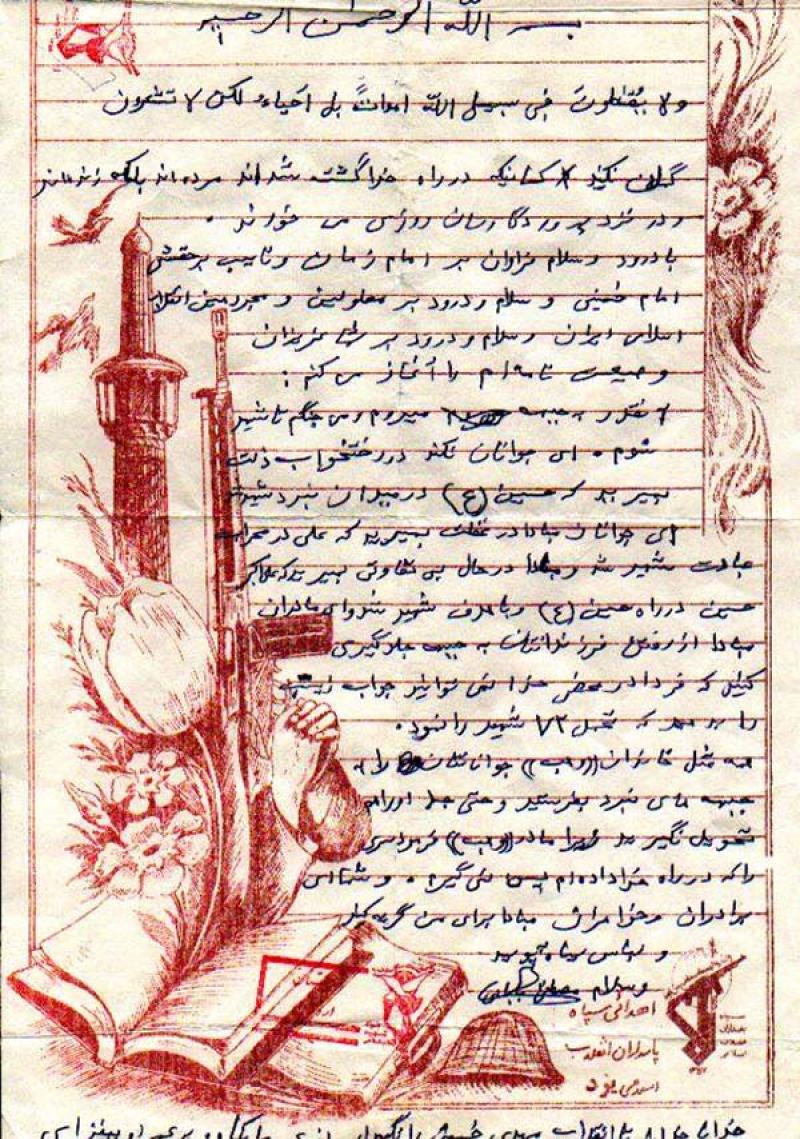 بسم الله الرحمن الرحیم
ولا یقتلون فی سبیل الله امواتً بل احیاءٌ ولکن لا تشعرون
گمان نکنید کسانیکه در راه خدا گشته شده‌اند مرده‌اند بلکه زنده‌اند
و در نزد پروردگارشان روزی می خورند .
با درود و سلام فراوان بر امام زمان و نایب برحقش
امام خمینی و سلام و درود بر معلولین و مجروحین انقلاب
اسلامی ایران و سلام و درود بر شما عزیزان
وصیت نامه‌ام را آغاز می کنم :
به جبهه میروم و می جنگم تا شهید
شوم . ای جوانان نکند در رختخواب ذلت
بمیرید که حسین (ع) در میدان نبرد شهید شد
ای جوانان مبادا در غفلت بمیرید که علی در محراب
عبادت شهید شد و مبادا در حال بی تفاوتی بمیرید که علی اکبر
حسین در راه حسین (ع) و با هدف شهید شد و ای مادران
مبادا از رفتن فرزندانتان به جبهه جلوگیری
کنید که فردا در محضر خدا نمی توانید جواب زینب
را بدهید که تحمل ۷۲ شهید را نمود .
همه مثل خاندان ((وهب)) جوانانتان را به
جبهه های نبرد بفرستید و حتی جسد او را هم
تحویل نگیرید زیرا مادر ((وهب)) فرمود سری
را که در راه خدا داده‌ام پس نمی گیرم . و شما ای
برادران و خواهران مبادا برای من گریه کنید
و لباس سیاه بپوشید
وسلام
اهدائی سپاه
پاسداران انقلاب
اسلامی یزد
خدایا خدایا تا انقلاب مهدی خمینی را نگهدار